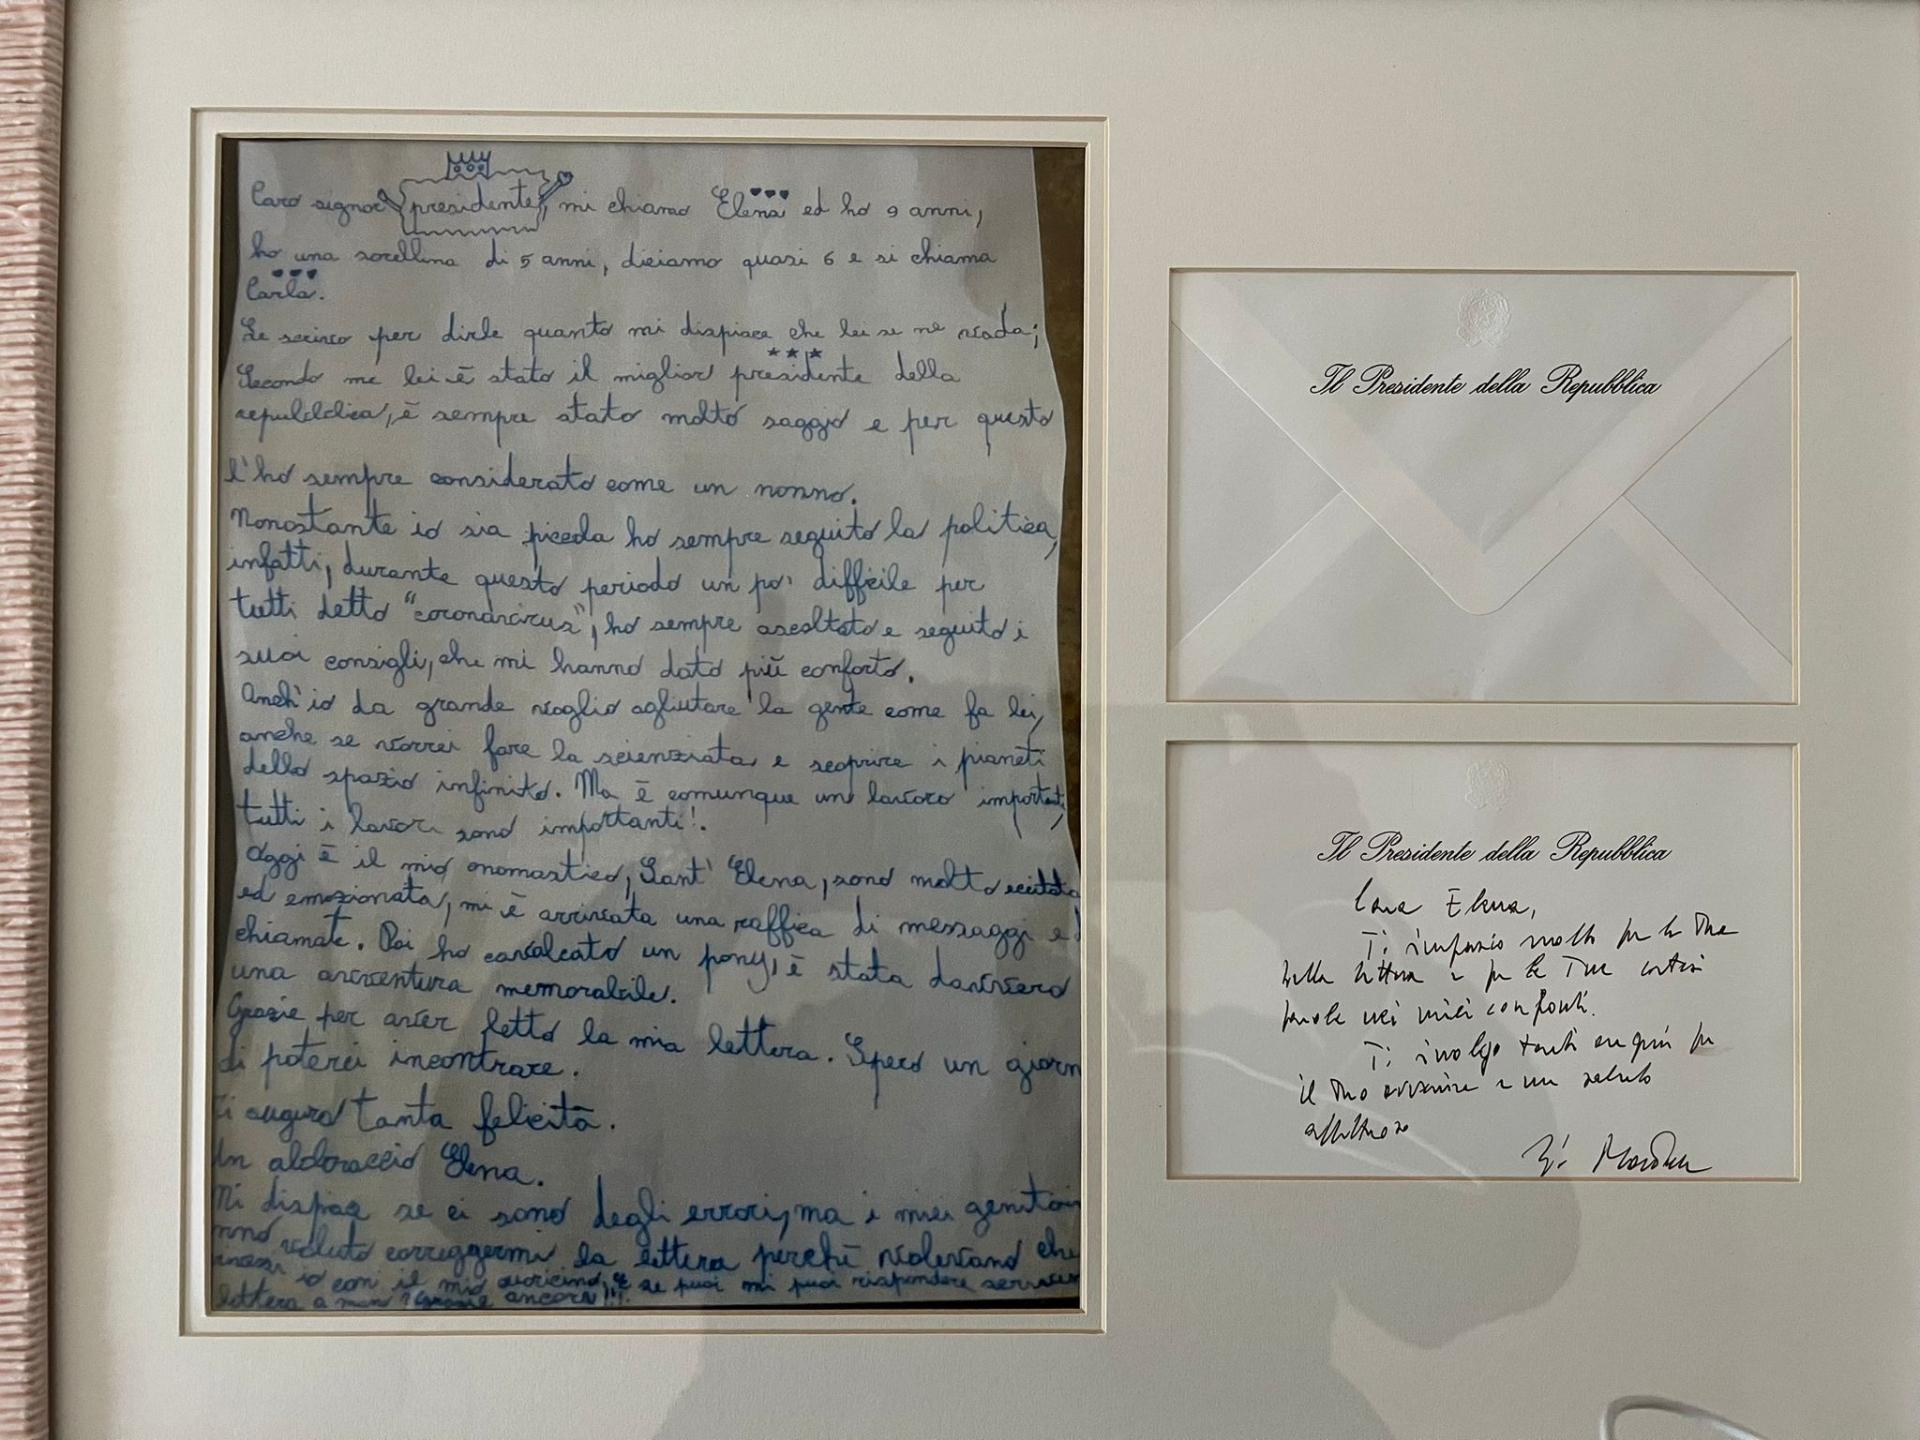 Caro signor presidente, mi chiamo Elena ed ho 9 anni,
ho una sorellina di 5 anni, diciamo quasi 6 e si chiama
Carla.
Le scrivo per dirle quanto mi dispiace che lei se ne vada;
Secondo me lei è stato il miglior presidente della
repubblica, è sempre stato molto saggio e per questo
l'ho sempre considerato come un nonno.
Nonostante io sia piccola ho sempre seguito la politica,
infatti, durante questo periodo un po' difficile per
tutti detto "coronavirus", ho sempre ascoltato e seguito i
suoi consigli, che mi hanno dato più conforto.
Anch'io da grande voglio agliutare la gente come fa lei,
anche se vorrei fare la scienziata e scoprire i pianeti
dello spazio infinito. Ma è comunque un lavoro important
tutti i lavori sono importanti!.
Oggi è il mio onomastico, Sant' Elena, sono molto eccitata
ed emozionata, mi è arrivata una raffica di messaggi e
chiamate. Poi ho cavalcato un pony, è stata davvero
una avventura memorabile.
Grazie per aver letto la mia lettera. Spero un giorn
di poterci incontrare.
Ti auguro tanta felicità.
Un abbraccio Elena.
Mi dispiace se ci sono degli errori, ma i miei genitori
nno voluto correggermi la lettera perchè volevano che
io con il mio cuoricino, e se puoi mi puoi rispondere
lettera a mano? Grazie ancora!!!
Il Presidente della Repubblica
Il Presidente della Repubblica
Cara Elena,
Ti ringrazio molto per la Tua
bella lettera e per le Tue cortesi
parole nei miei confronti.
Ti rivolgo tanti auguri per
il Tuo avvenire e un saluto
affettuoso